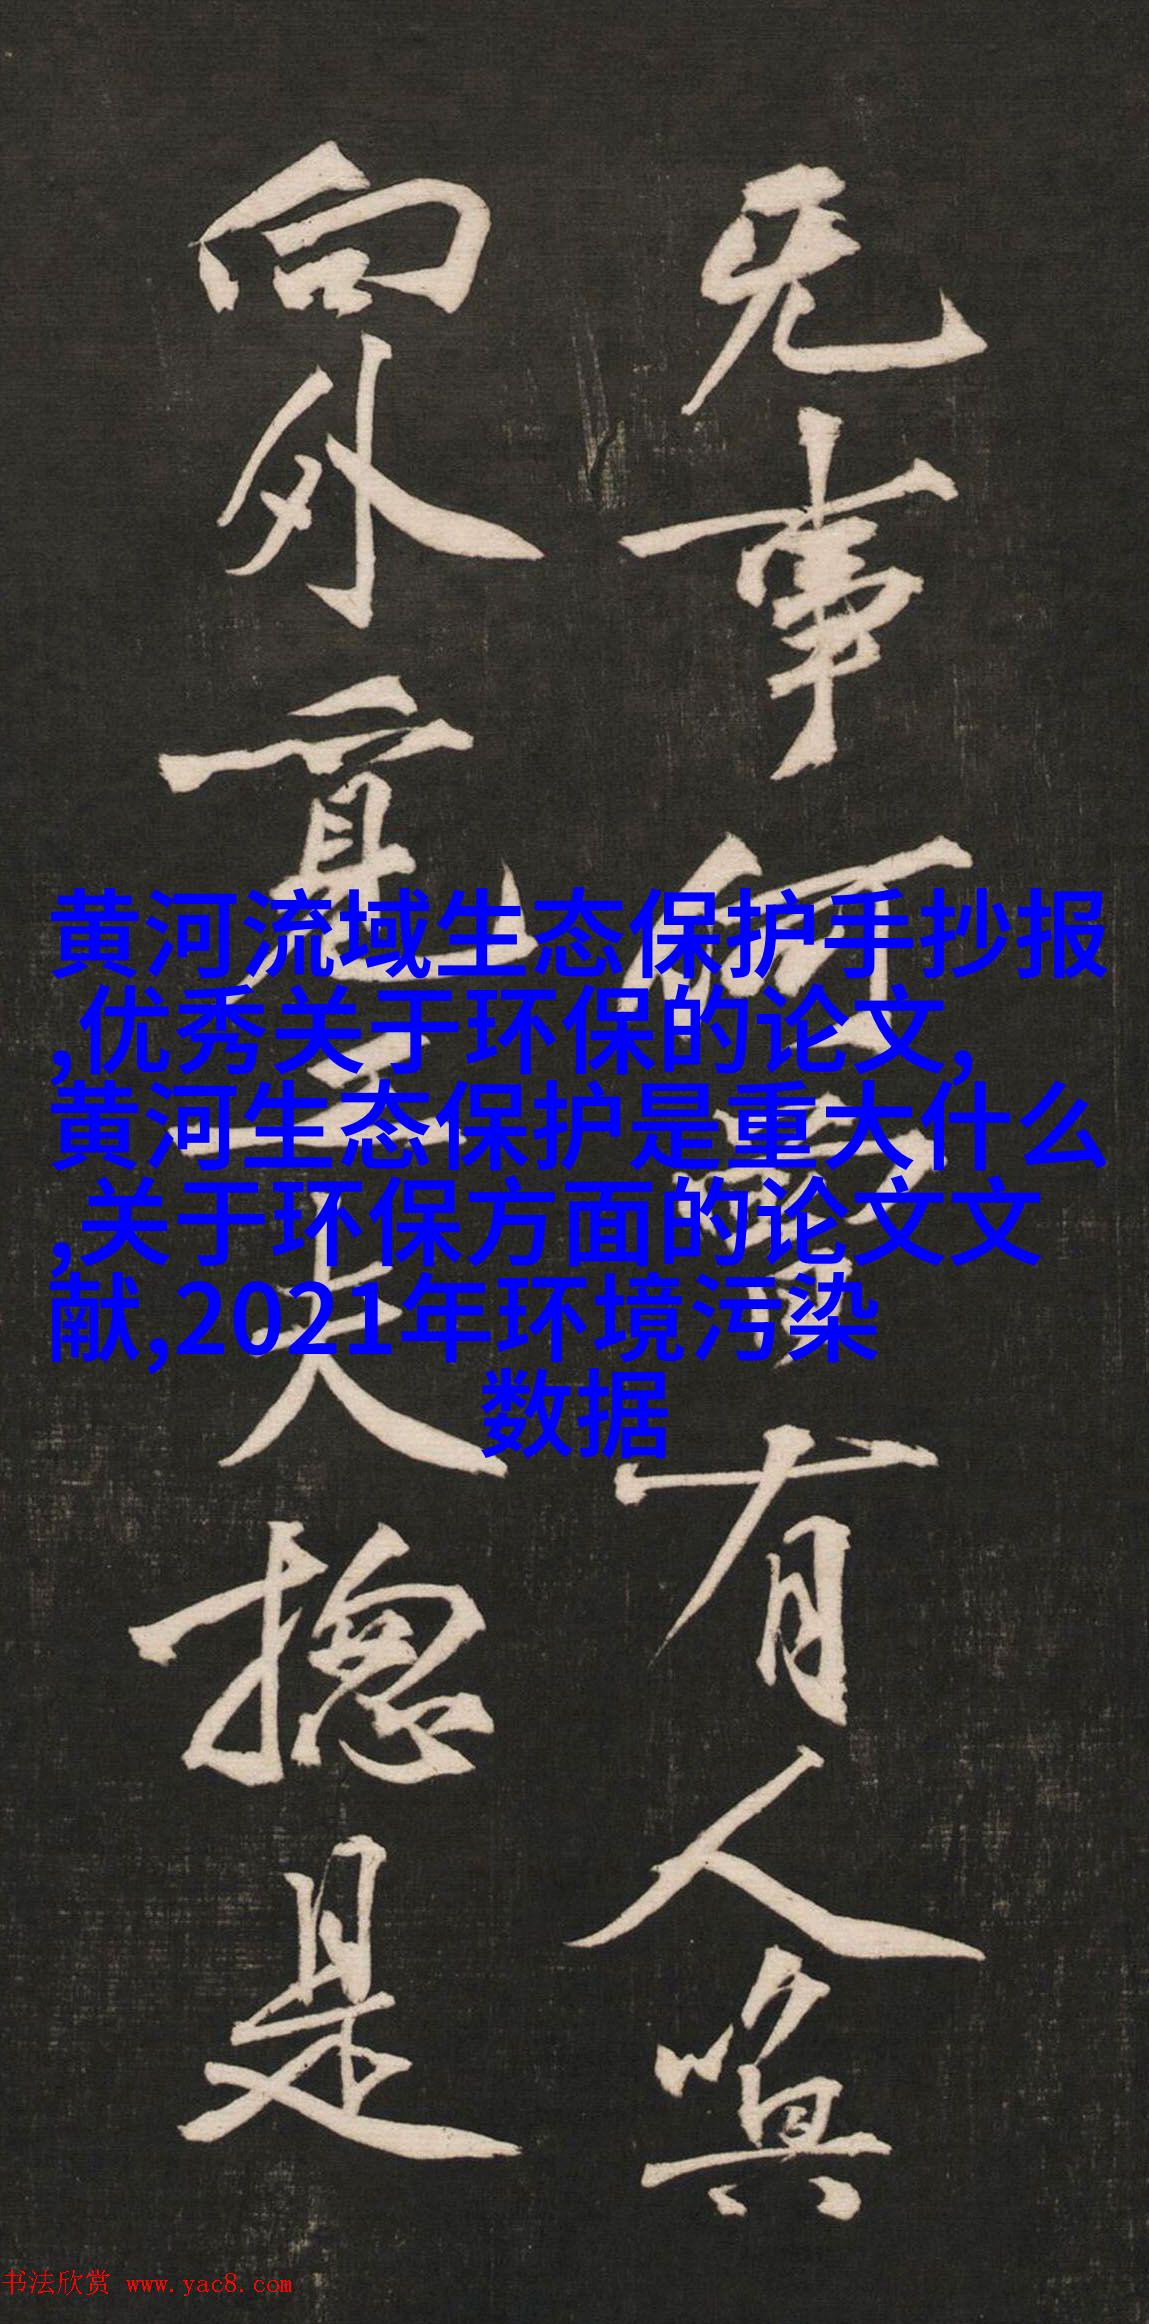 事
有
人
向
外
大
揔
是
黄河流域生态保护手抄报
,优秀关于环保的论文,
黄河生态保护是重大什么
,关于环保方面的论文文
献,2021年环境污染
数据
书法欣赏 www.yac8.com